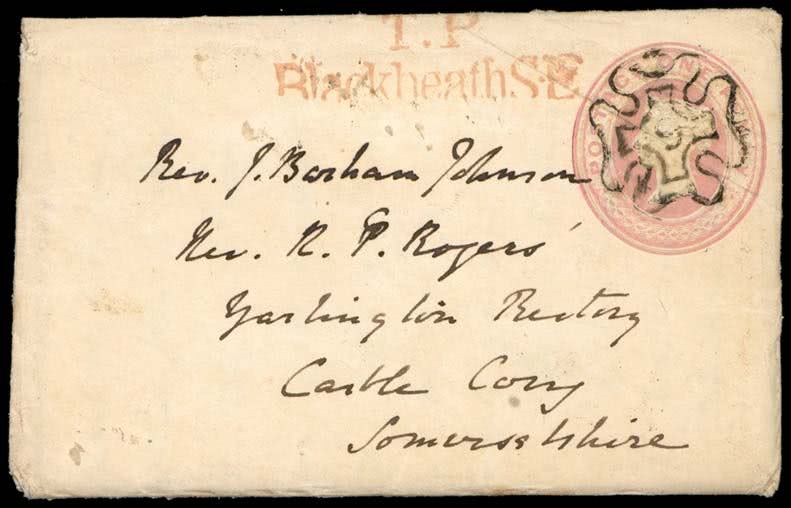 T.P
Blackheath S.E
POSTAGE ONE PENNY
5
Rev. J. Barham Johnson
Rev. R. P. Rogers'
Yarlington Rectory
Castle Cary
Somersetshire